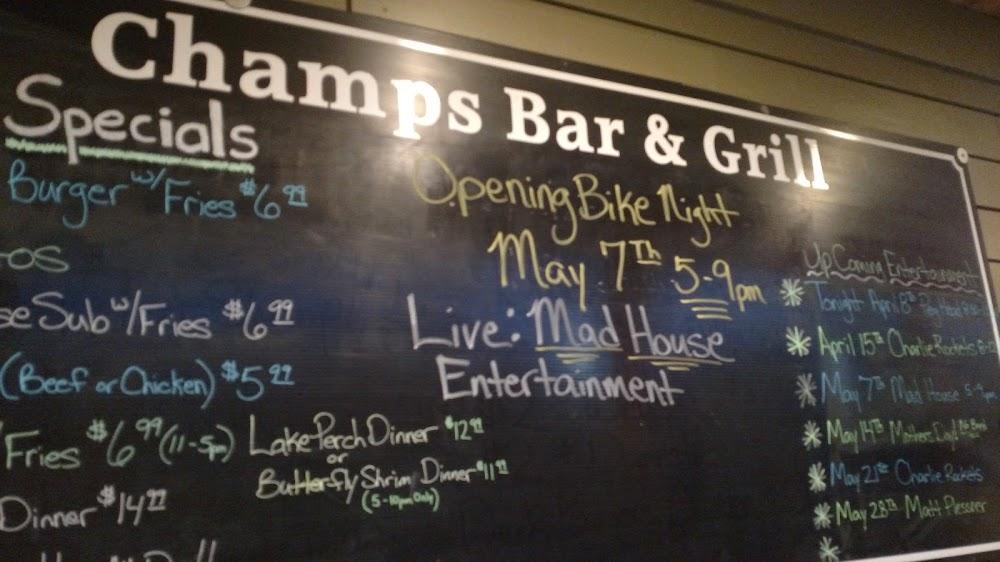 Champs Bar & Grill
Specials
Burger w/ Fries $6.99
os
se Sub w/ Fries $6.99
(Beef or Chicken) $5.99
Fries $6.99 (11-5pm)
Dinner $14.99
Lake Perch Dinner $12.99
or
Butterfly Shrim Dinner $11.99
(5-10pm Only)
Opening Bike Night
May 7th 5-9pm
Live: Mad House
Entertainment
UpComing Entertainment
* Tonight April 8th
* April 15th Charlie Rockets
* May 7th Mad House 5-9pm
* May 14th Mothers Day
* May 21st Charlie Rockets
* May 28th Matt Plessner
*